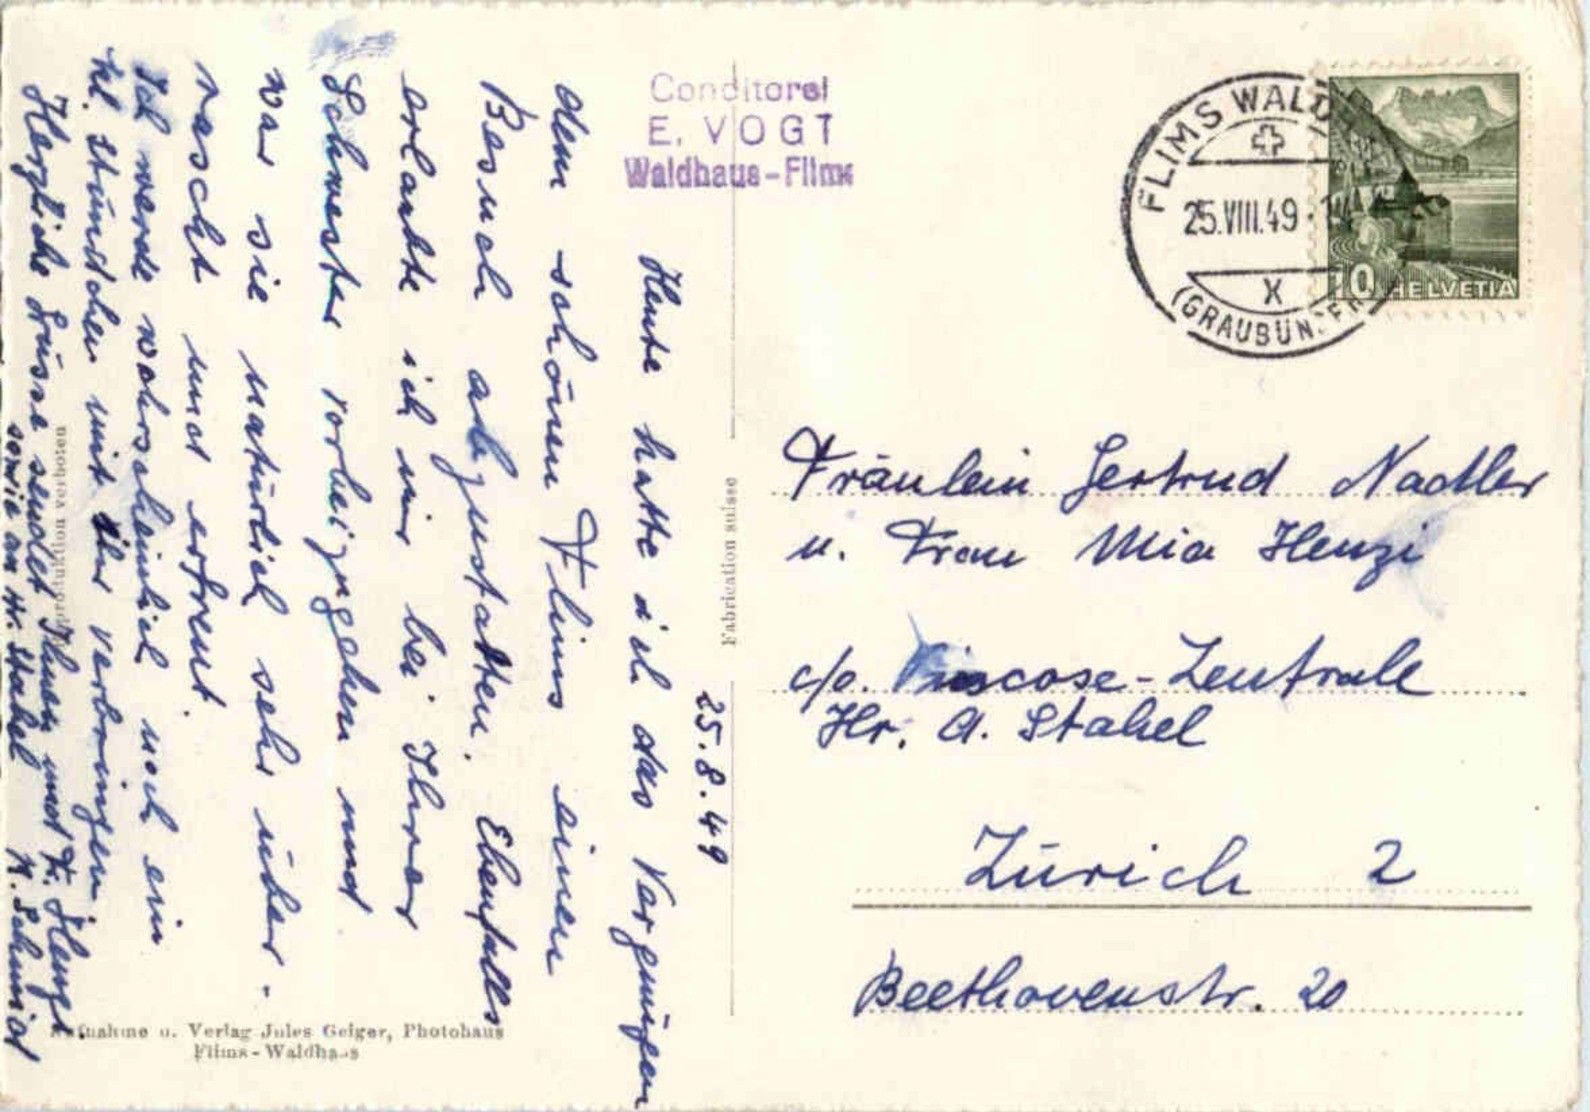 25.8.49
Heute hatte ich das Vergnügen
dem schönen Flims einen
Besuch abzustatten. Ebenfalls
erlaubte ich mir bei Ihrer
Schwester vorbeizugehen und
war sie natürlich sehr über-
rascht und erfreut.
Ich werde wahrscheinlich noch ein
kl. Stündchen mit ihr verbringen.
Herzliche Grüsse sendet Ihnen und F. Henzi
sowie an Hr. Stahel M. Schmid
Reproduktion verboten
Aufnahme u. Verlag Jules Geiger, Photohaus
Flims-Waldhaus
Fabrication suisse
Conditorei
E. VOGT
Waldhaus-Flims
FLIMS WALDHAUS
25.VIII.49
X
(GRAUBÜNDEN)
10 HELVETIA
Fräulein Gertrud Nadler
u. Frau Mia Henzi
c/o. Viscose-Zentrale
Hr. A. Stahel
Zürich 2
Beethovenstr. 20